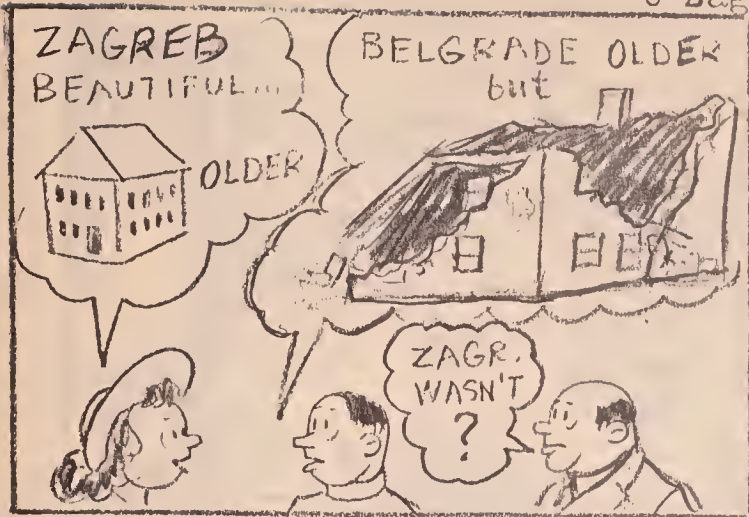 ZAGREB
BEAUTIFUL...
OLDER
BELGRADE OLDER
but
ZAGR.
WASN'T
?